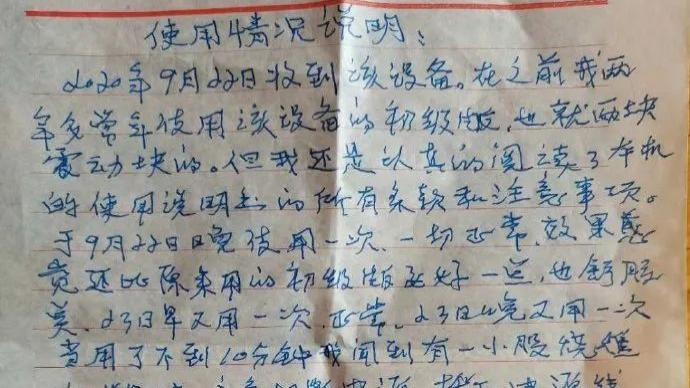 使用情况说明:
2020年9月22日收到该设备。在之前我两
年多常年使用该设备的初级版, 也就两块
震动块的。但我还是认真的阅读了本机
的使用说明书的所有条款和注意事项。
于9月22日晚使用一次、一切正常,效果感
觉还比原来用的初级版还好一些,也舒服
些、23日早又用一次,正常、23日晚又用一次
当用了不到10分钟我闻到有一小股烧焦